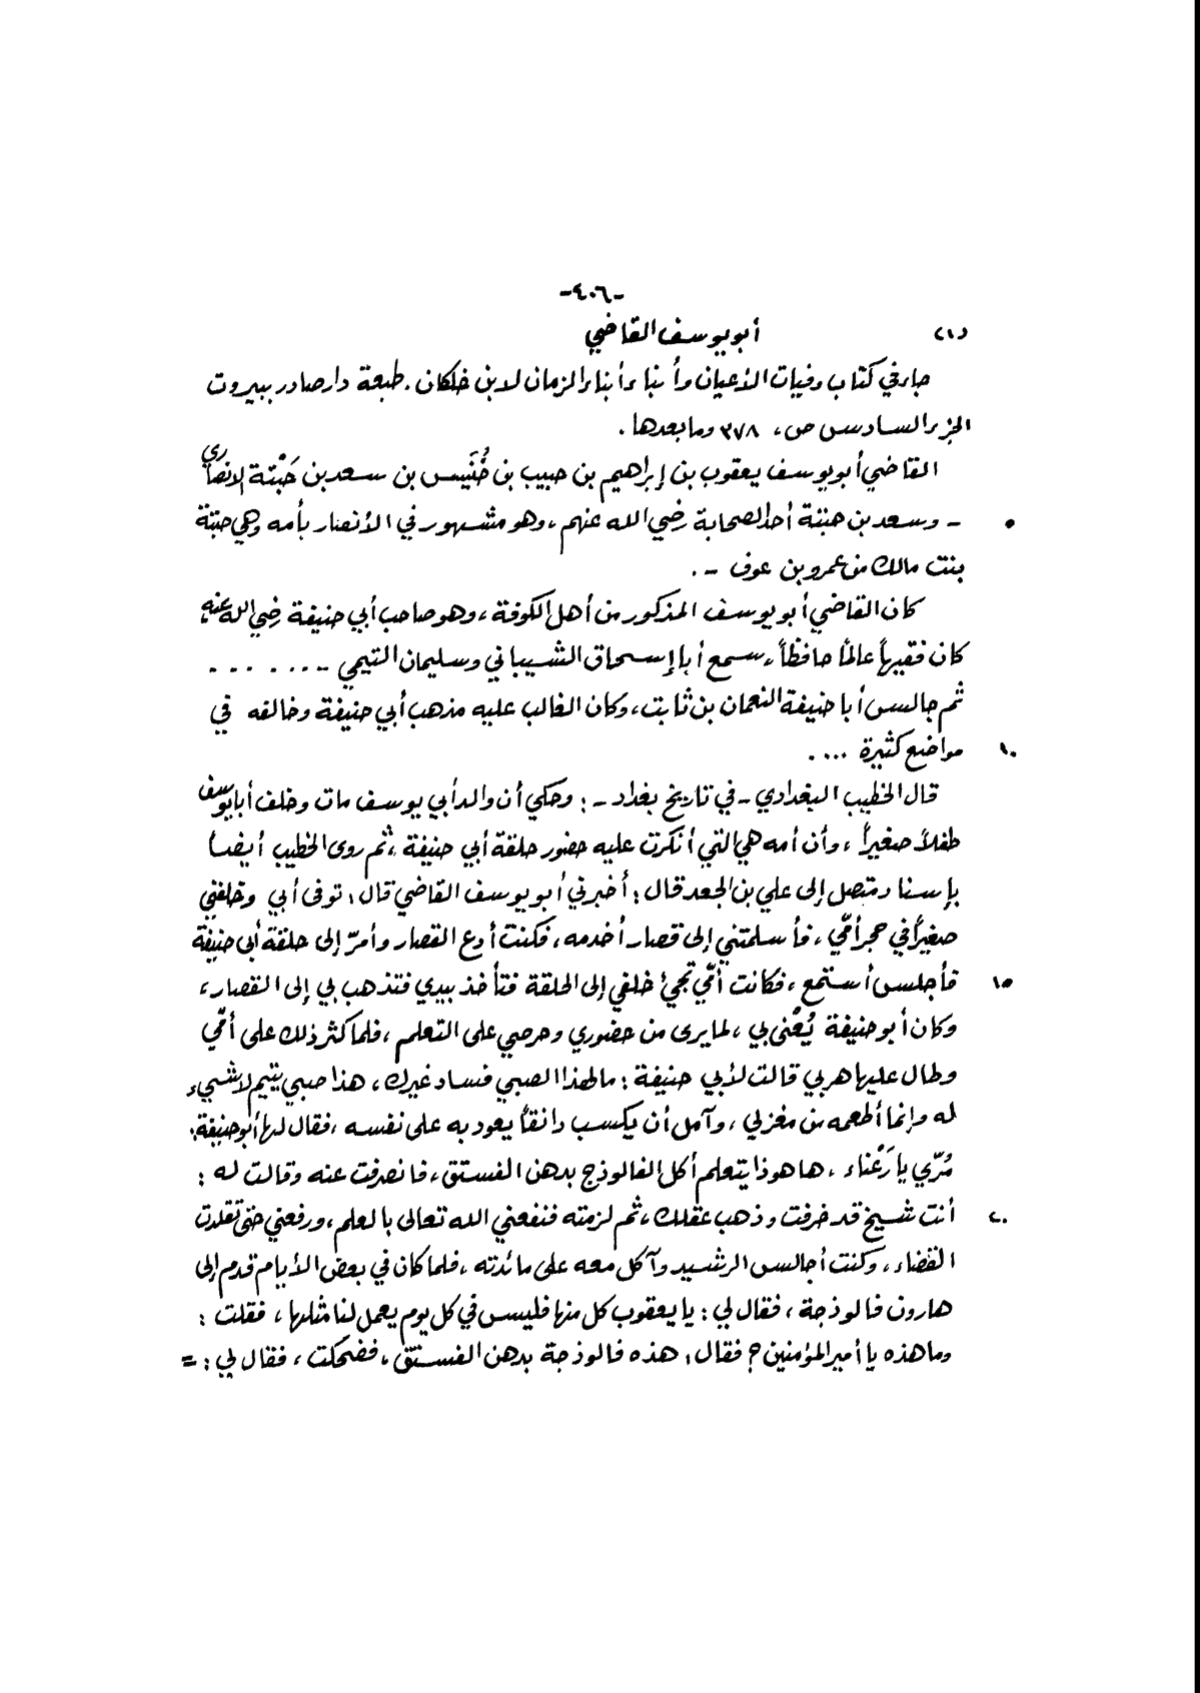 -٤٠٦-
(١) أبو يوسف القاضي
جاء في كتاب وفيات الأعيان وأنباء أبناء الزمان لابن خلكان . طبعة دار صادر ببيروت
الجزء السادس ص، ٣٧٨ وما بعدها .
القاضي أبو يوسف يعقوب بن إبراهيم بن حبيب بن خُنَيس بن سعد بن حَبْتة الانصاري
٥ - وسعد بن حبتة أحد الصحابة رضي الله عنهم ، وهو مشهور في الأنصار بأمه وهي حبتة
بنت مالك من عمرو بن عوف - .
كان القاضي أبو يوسف المذكور من أهل الكوفة ، وهو صاحب أبي حنيفة رضي الله عنه
كان فقيهاً عالماً حافظاً ، سمع أبا إسحاق الشيباني وسليمان التيمي - . . . . . . .
ثم جالس أبا حنيفة النعمان بن ثابت ، وكان الغالب عليه مذهب أبي حنيفة وخالفه في
١٠ مواضع كثيرة . . . .
قال الخطيب البغدادي - في تاريخ بغداد - : وحكي أن والد أبي يوسف مات وخلف أبا يوسف
طفلاً صغيراً ، وأن أمه هي التي أنكرت عليه حضور حلقة أبي حنيفة ، ثم روى الخطيب أيضاً
بإسناد متصل إلى علي بن الجعد قال : أخبرني أبو يوسف القاضي قال : توفى أبي وخلفني
صغيراً في حجر أمّي ، فأسلمتني إلى قصار أخدمه ، فكنت أدع القصار وأمرّ إلى حلقة أبي حنيفة
١٥ فأجلس أستمع ، فكانت أمّي تجيُ خلفي إلى الحلقة فتأخذ بيدي فتذهب بي إلى القصار ،
وكان أبو حنيفة يُعْنى بي ، لما يرى من حضوري وحرصي على التعلم ، فلما كثر ذلك على أمّي
وطال عليها هربي قالت لأبي حنيفة : ما لهذا الصبي فساد غيرك ، هذا صبي يتيم لا شيء
له وإنما أطعمه من مغزلي ، وآمل أن يكسب دانقاً يعود به على نفسه ، فقال لها أبو حنيفة:
مُرّي يا رَعْناء ، ها هو ذا يتعلم أكل الفالوذج بدهن الفستق ، فانصرفت عنه وقالت له :
٢٠ أنت شيخ قد خرفت وذهب عقلك ، ثم لزمته فنفعني الله تعالى بالعلم ، ورفعني حتى تقلدت
القضاء ، وكنت أجالس الرشيد وآكل معه على مائدته ، فلما كان في بعض الأيام قدم إلى
هارون فالوذجة ، فقال لي : يا يعقوب كل منها فليس في كل يوم يعمل لنا مثلها ، فقلت :
وما هذه يا أمير المؤمنين ؟ فقال : هذه فالوذجة بدهن الفستق ، فضحكت ، فقال لي : =